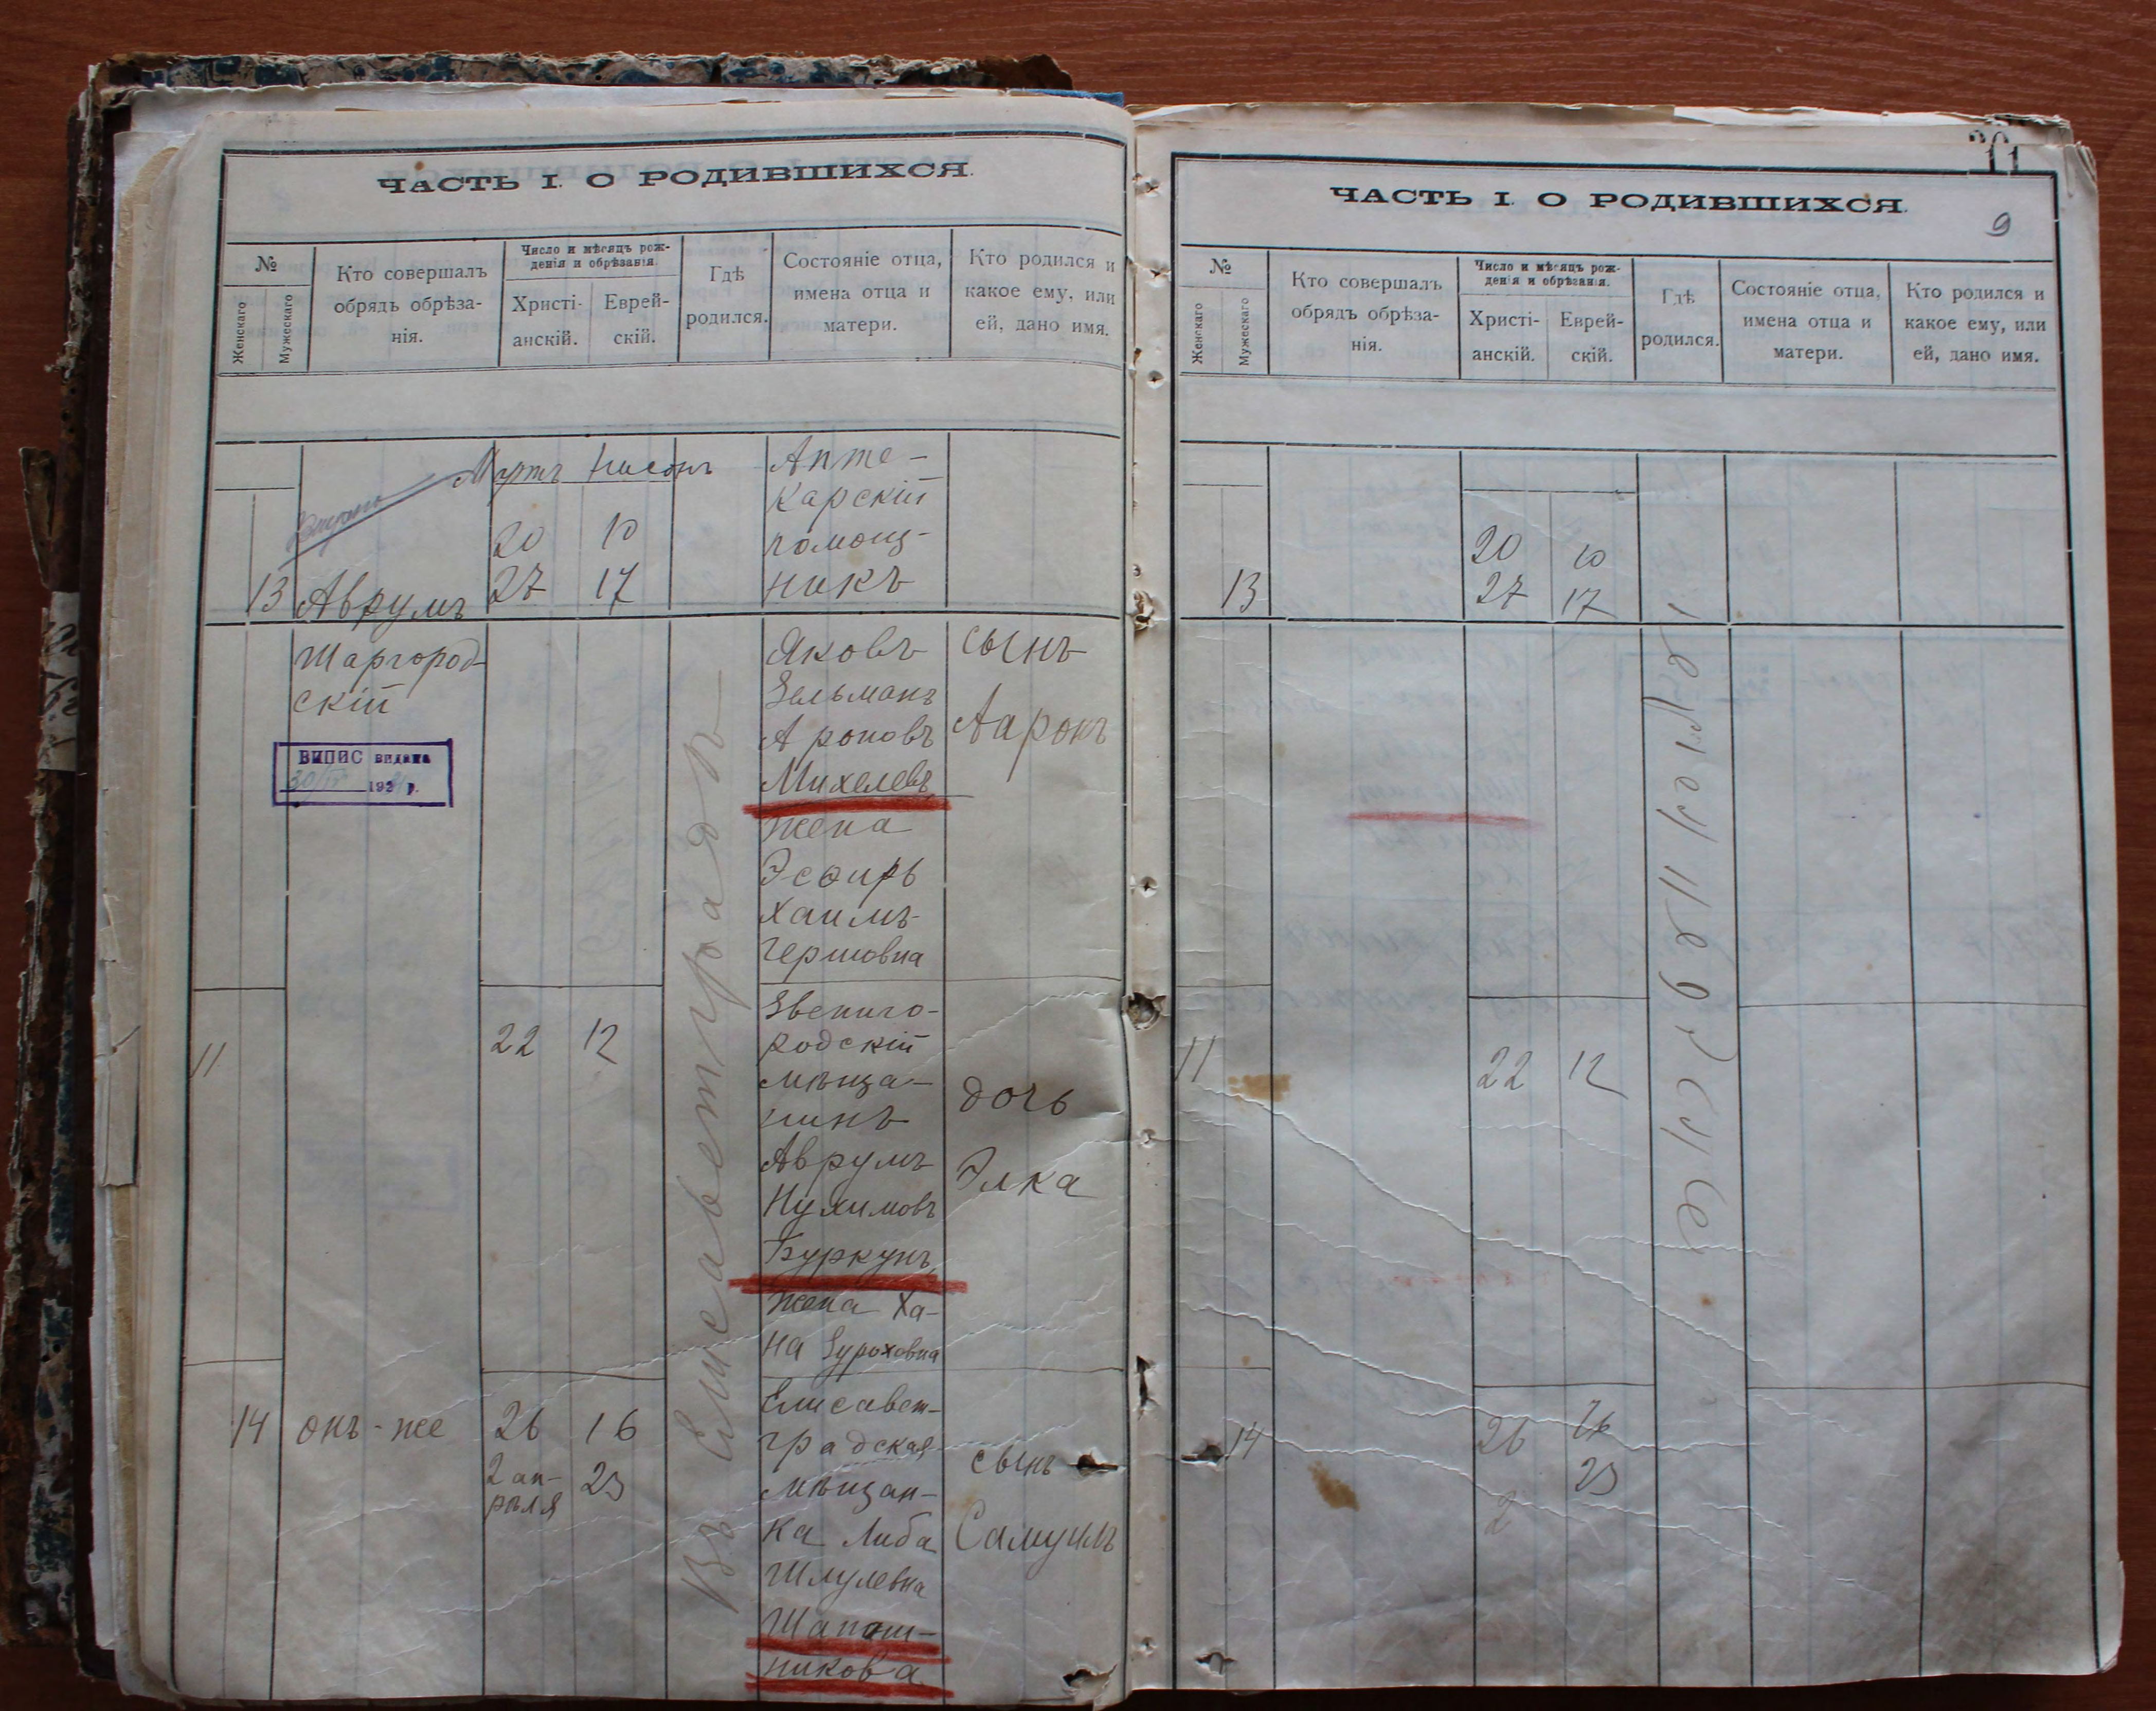 ЧАСТЬ I. О РОДИВШИХСЯ.
№
Женскаго
Мужескаго
Кто совершалъ
обрядъ обрѣза-
нія.
Число и мѣсяцъ рож-
денія и обрѣзанія.
Христі-
анскій.
Еврей-
скій.
Гдѣ
родился.
Состояніе отца,
имена отца и
матери.
Кто родился и
какое ему, или
ей, дано имя.
Мартъ Нисонъ
13
Аврумъ
Шаргород-
скій
ВИПИС видана
192 р.
20 10
27 17
Въ Елисаветградѣ
Апте-
карскій
помощ-
никъ
Яковъ
Зельманъ
Ароновъ
Михелевъ
жена
Эсѳирь
Хаимъ-
Гершовна
сынъ
Ааронъ
11
22 12
Звениго-
родскій
мѣща-
нинъ
Аврумъ
Нухимовъ
Буркунъ
жена Ха-
на Зуроховна
дочь
Элка
14
онъ-же
26 16
2 ап- 23
рѣля
Елисавет-
градская
мѣщан-
ка Либа
Шмулевна
Шапош-
никова
сынъ
Самуилъ
11
9
ЧАСТЬ I. О РОДИВШИХСЯ.
№
Женскаго
Мужескаго
Кто совершалъ
обрядъ обрѣза-
нія.
Число и мѣсяцъ рож-
денія и обрѣзанія.
Христі-
анскій.
Еврей-
скій.
Гдѣ
родился.
Состояніе отца,
имена отца и
матери.
Кто родился и
какое ему, или
ей, дано имя.
13
20 10
27 17
11
22 12
14
26 16
2 23